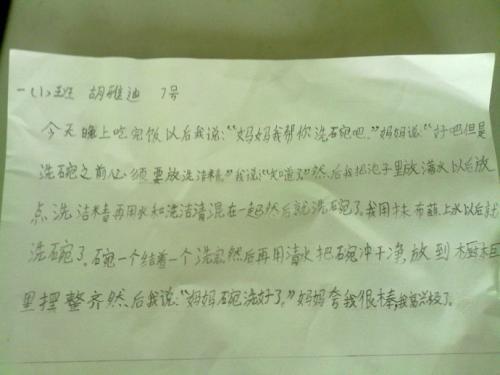 一(1)班 胡雅迪 7号
今天晚上吃完饭以后我说:“妈妈我帮你洗碗吧。”妈妈说:“好吧但是
洗碗之前必须要放洗洁精。”我说:“知道了”然后我把池子里放满水以后放
点洗洁精再用水和洗洁清混在一起然后就洗碗了。我用抹布葫上水以后就
洗碗了。碗一个结着一个洗完然后再用清水把碗冲干净,放到橱柜
里摆整齐然后我说:“妈妈碗洗好了。”妈妈夸我很棒,我高兴极了。